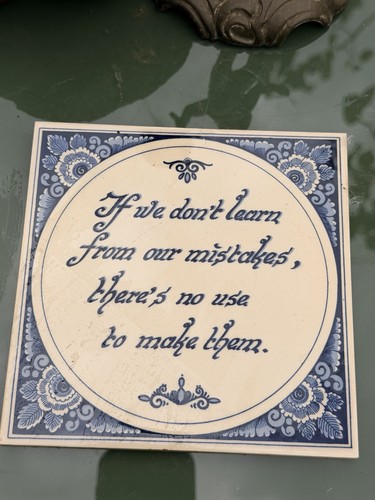 If we don't learn
from our mistakes,
there's no use
to make them.